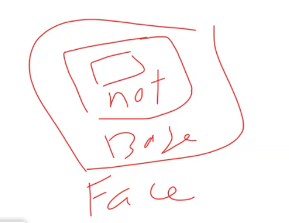 not
Base
Face